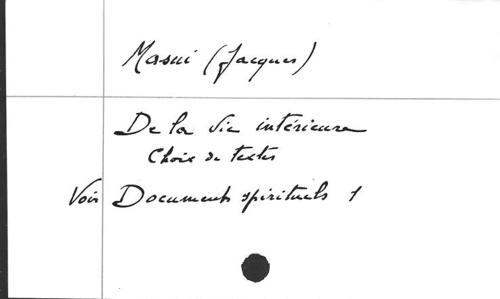 Masui (Jacques)
De la vie intérieure
Choix de textes
Voir Documents spirituels 1